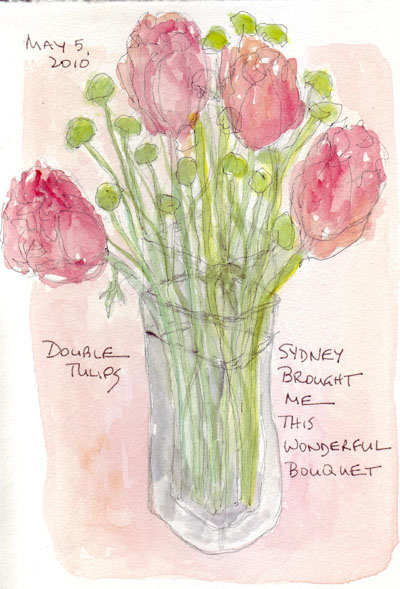 MAY 5,
2010
DOUBLE
TULIPS
SYDNEY
BROUGHT
ME
THIS
WONDERFUL
BOUQUET